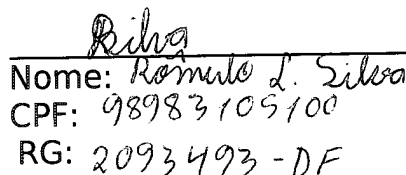 Silva
Nome: Rômulo L. Silva
CPF: 98983105100
RG: 2093493-DF